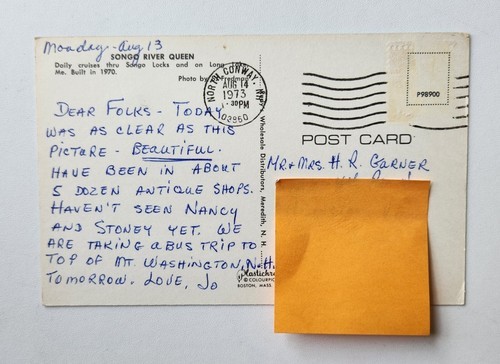 Monday - Aug 13
SONGO RIVER QUEEN
Daily cruises thru Songo Locks and on Long
Me. Built in 1970.
Photo by
NORTH CONWAY,
AUG 14
1973
PM
03860
P98900
DEAR FOLKS - TODAY
WAS AS CLEAR AS THIS
PICTURE - BEAUTIFUL.
HAVE BEEN IN ABOUT
5 DOZEN ANTIQUE SHOPS.
HAVEN'T SEEN NANCY
AND STONEY YET. WE
ARE TAKING A BUS TRIP TO
TOP OF MT. WASHINGTON, N.H.
TOMORROW. LOVE, JO
Wholesale Distributors, Meredith, N. H.
Plastichro
© COLOURPIC
BOSTON, MASS.
POST CARD
MR & MRS. H. R. GARNER